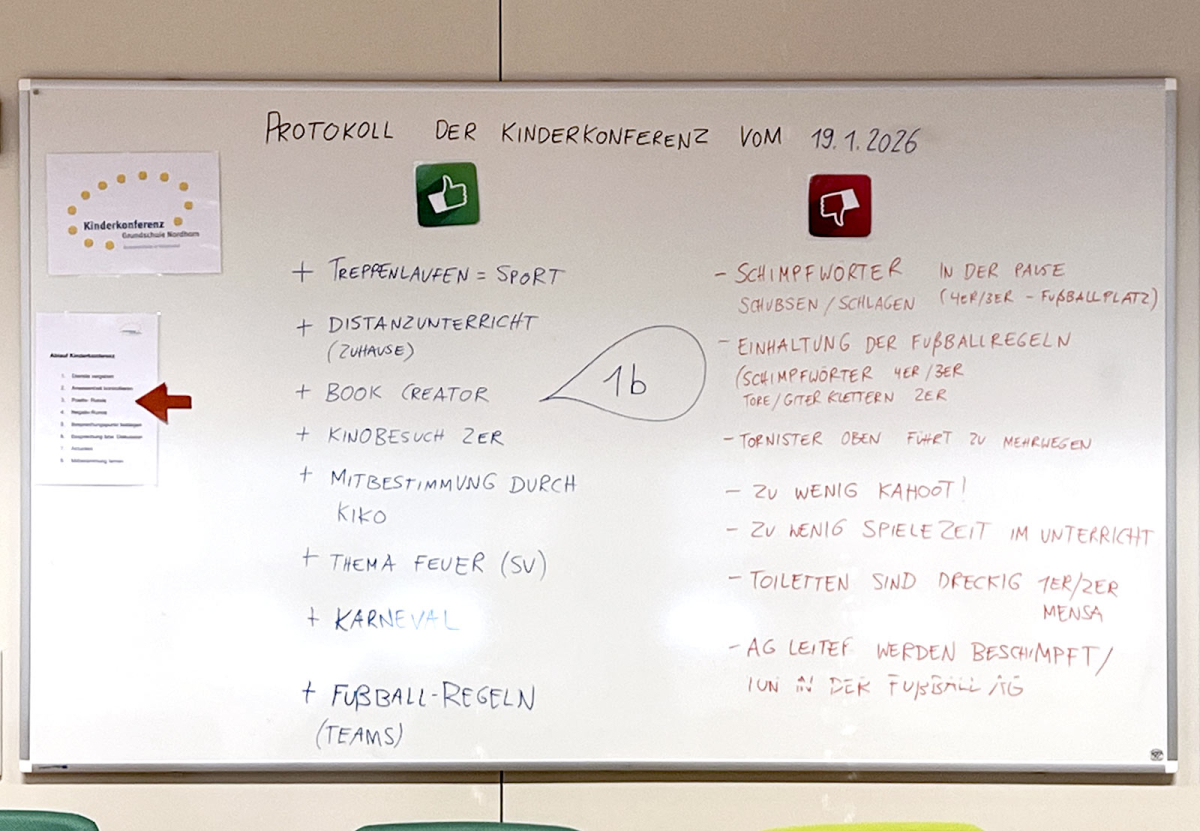 PROTOKOLL DER KINDERKONFERENZ VOM 19.1.2026
Kinderkonferenz
Grundschule Nordhorn
Ablauf Kinderkonferenz
1. Dienste vergeben
2. Anwesenheit kontrollieren
3. Positiv-Runde
4. Negativ-Runde
5. Besprechungspunkt festlegen
6. Besprechung bzw. Diskussion
7.
8.
+ TREPPENLAUFEN = SPORT
+ DISTANZUNTERRICHT
(ZUHAUSE)
+ BOOK CREATOR
1b
+ KINOBESUCH 2ER
+ MITBESTIMMUNG DURCH
KIKO
+ THEMA FEUER (SV)
+ KARNEVAL
+ FUßBALL-REGELN
(TEAMS)
- SCHIMPFWÖRTER IN DER PAUSE
SCHUBSEN / SCHLAGEN (4ER/3ER - FUßBALLPLATZ)
- EINHALTUNG DER FUßBALLREGELN
(SCHIMPFWÖRTER 4ER/3ER
TORE/GITER KLETTERN 2ER
- TORNISTER OBEN FÜHRT ZU MEHRWEGEN
- ZU WENIG KAHOOT!
- ZU WENIG SPIELEZEIT IM UNTERRICHT
- TOILETTEN SIND DRECKIG 1ER/2ER
MENSA
- AG LEITER WERDEN BESCHIMPFT/
IN DER FUßBALL AG